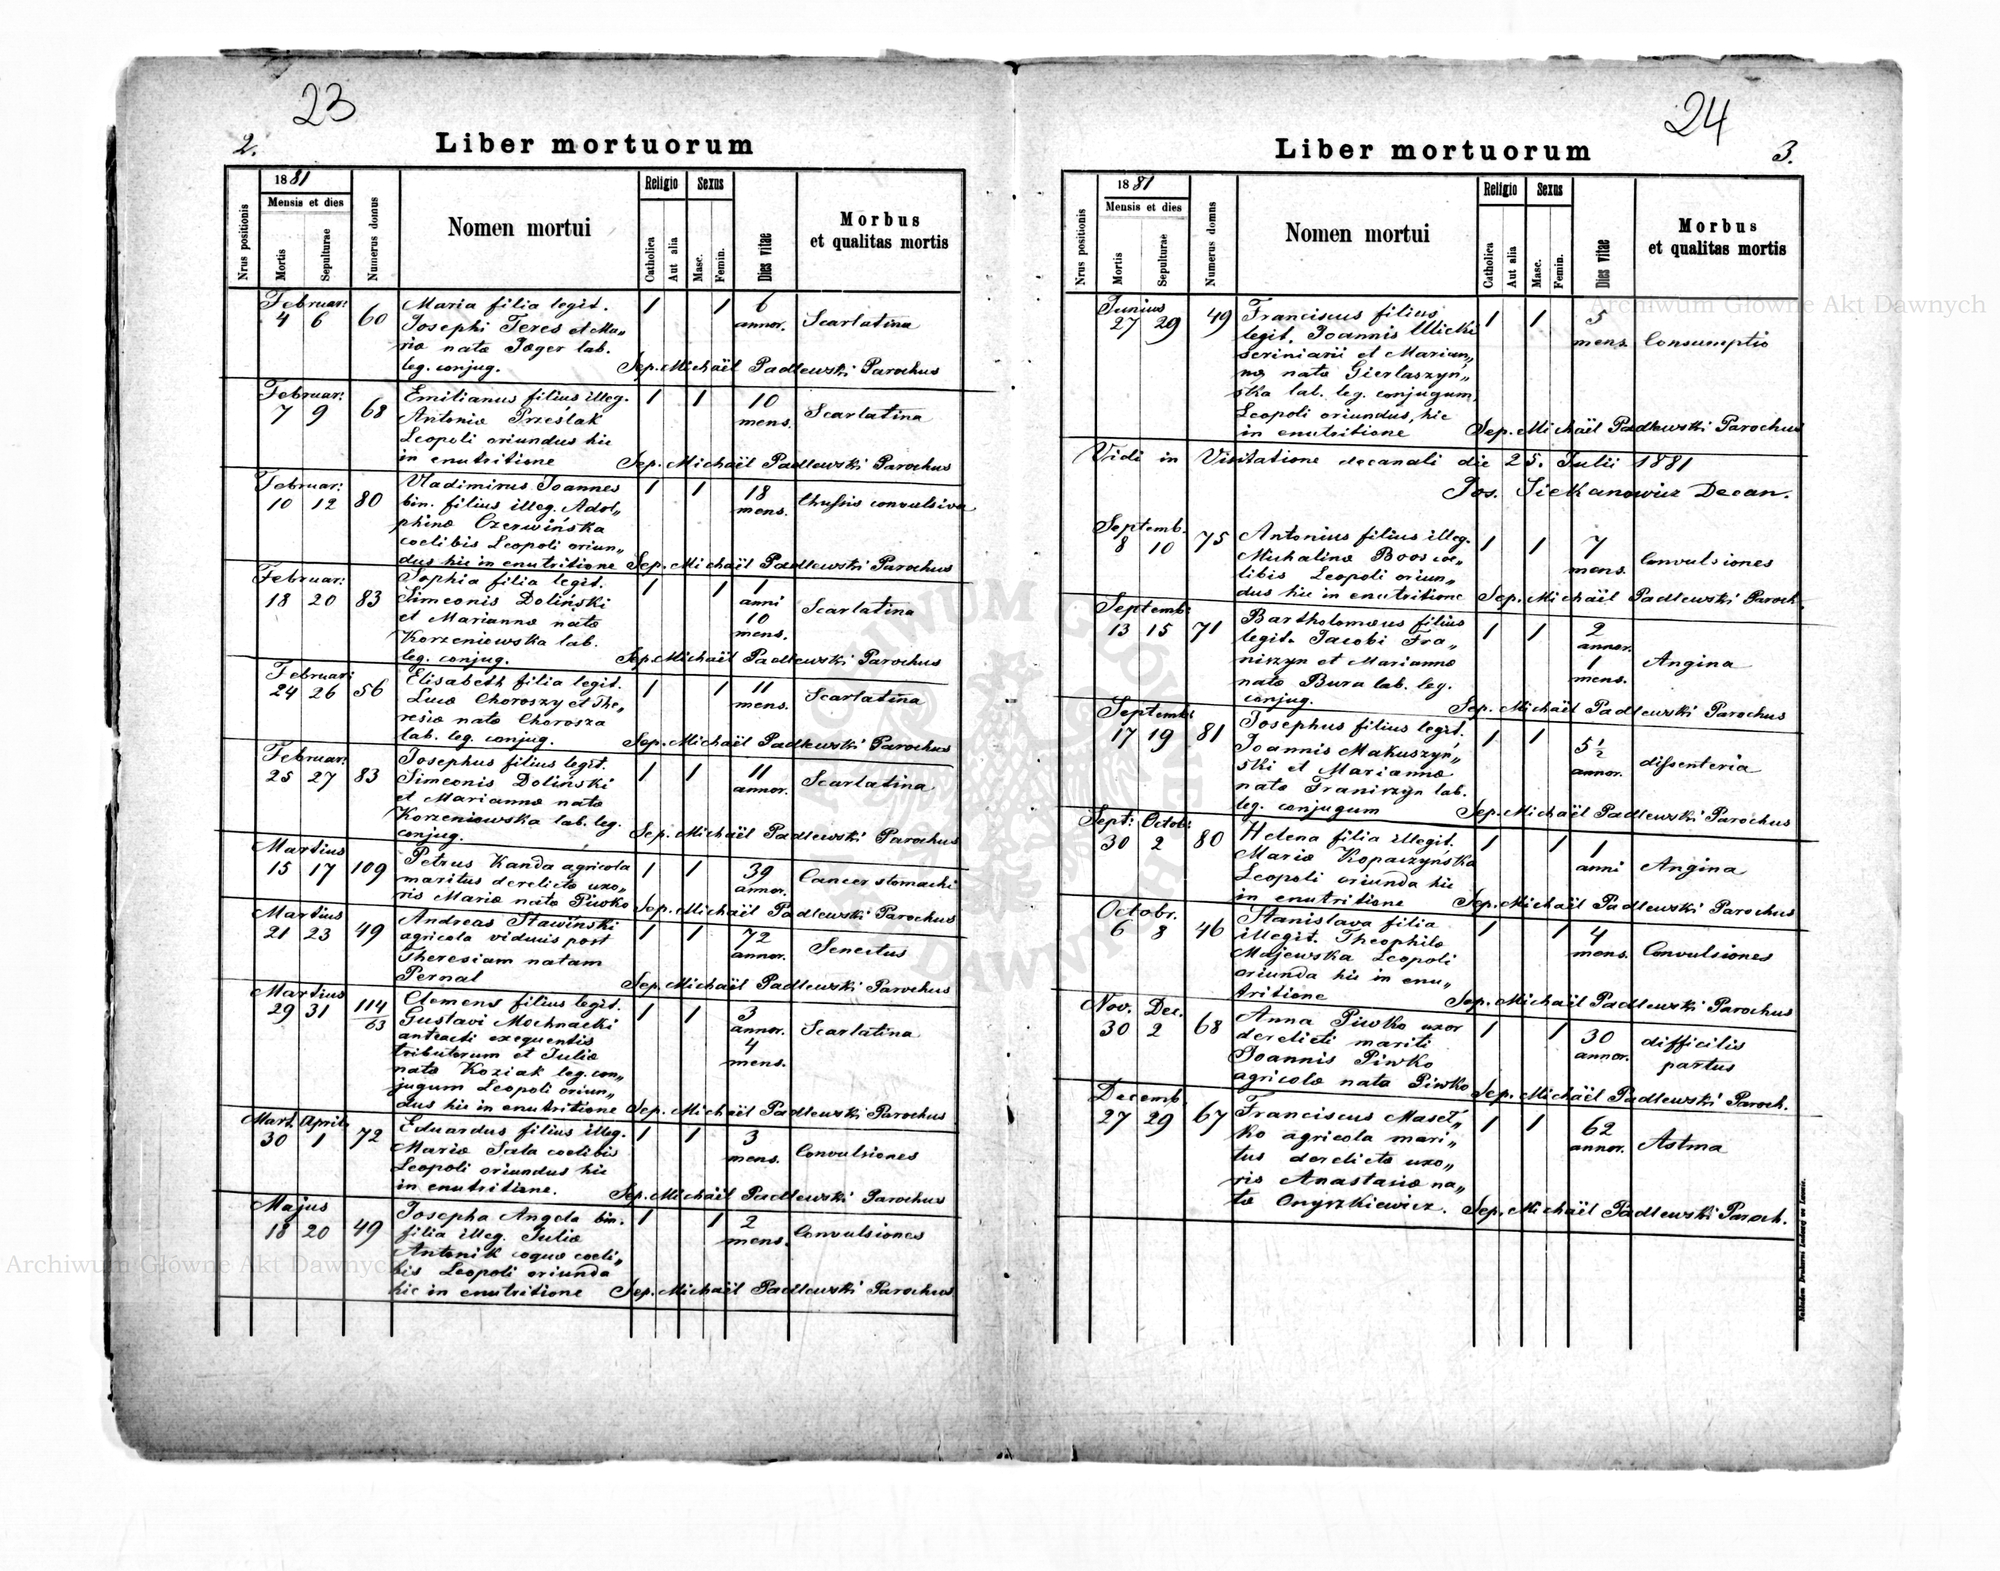 23
2.
Liber mortuorum
1881
Mensis et dies
Religio
Sexus
Nrus positionis
Mortis
Sepulturae
Numerus domus
Nomen mortui
Catholica
Aut alia
Masc.
Femin.
Dies vitae
Morbus
et qualitas mortis
Februar:
4 6 60 Maria filia legit. 1 1 6
Josephi Feres et Ma„ annor. Scarlatina
riæ natæ Jæger lab.
leg. conjug. Sep. Michaël Padlewski Parochus
Februar:
7 9 68 Emilianus filius illeg. 1 1 10
Antoniæ Prześlak mens. Scarlatina
Leopoli oriundus hic
in enutritione Sep. Michaël Padlewski Parochus
Februar:
10 12 80 Vladimirus Joannes 1 1 18
bin. filius illeg. Adol„ mens. Chussis convulsiva
phinæ Czerwińska
coelibis Leopoli oriun„
dus hic in enutritione Sep. Michaël Padlewski Parochus
Februar:
18 20 83 Sophia filia legit. 1 1 1
Simeonis Doliński anni Scarlatina
et Mariannæ natæ 10
Korzeniowska lab. mens.
leg. conjug. Sep. Michaël Padlewski Parochus
Februar:
24 26 56 Elisabeth filia legit. 1 1 11
Lucæ Choroszy et The„ mens. Scarlatina
resiæ natæ Chorosza
lab. leg. conjug. Sep. Michaël Padlewski Parochus
Februar:
25 27 83 Josephus filius legit. 1 1 11
Simeonis Doliński annor. Scarlatina
et Mariannæ natæ
Korzeniowska lab. leg.
conjug. Sep. Michaël Padlewski Parochus
Martius
15 17 109 Petrus Kanda agricola 1 1 39
maritus derelictæ uxo„ annor. Cancer stomachi
ris Mariæ natæ Piwko Sep. Michaël Padlewski Parochus
Martius
21 23 49 Andreas Stawiński 1 1 72
agricola viduus post annor. Senectus
Theresiam natam
Pernal Sep. Michaël Padlewski Parochus
Martius
29 31 114/63 Clemens filius legit. 1 1 3
Gustavi Mochnacki annor. Scarlatina
anteacti exequentis 4
tributorum et Juliæ mens.
natæ Koziak leg. con„
jugum Leopoli oriun„
dus hic in enutritione Sep. Michaël Padlewski Parochus
Mart. April.
30 1 72 Eduardus filius illeg. 1 1 3
Mariæ Sala coelibis mens. Convulsiones
Leopoli oriundus hic
in enutritione. Sep. Michaël Padlewski Parochus
Majus
18 20 49 Josepha Angela bin. 1 1 2
filia illeg. Juliæ mens. Convulsiones
Antonik coquæ coeli„
bis Leopoli oriunda
hic in enutritione Sep. Michaël Padlewski Parochus
24
3.
Liber mortuorum
1881
Mensis et dies
Religio
Sexus
Nrus positionis
Mortis
Sepulturae
Numerus domus
Nomen mortui
Catholica
Aut alia
Masc.
Femin.
Dies vitae
Morbus
et qualitas mortis
Junius
27 29 49 Franciscus filius 1 1 5
legit. Joannis Ulicki mens. Consumptio
scriniarii et Marian„
næ natæ Gierlaszyń„
ska lab. leg. conjugum,
Leopoli oriundus, hic
in enutritione Sep. Michaël Padlewski Parochus
Vidi in Visitatione decanali die 25. Julii 1881
Jos. Siekanowicz Decan.
Septemb.
8 10 75 Antonius filius illeg. 1 1 7
Michalinæ Boos coe„ mens. Convulsiones
libis Leopoli oriun„
dus hic in enutritione Sep. Michaël Padlewski Paroch.
Septemb:
13 15 71 Bartholomæus filius 1 1 2
legit. Jacobi Fra„ annor.
niszyn et Mariannæ 1 Angina
natæ Bura lab. leg. mens.
conjug. Sep. Michaël Padlewski Parochus
Septemb:
17 19 81 Josephus filius legit. 1 1 5½
Joannis Makuszyń„ annor. dissenteria
ski et Mariannæ
natæ Franiszyn lab.
leg. conjugum Sep. Michaël Padlewski Parochus
Sept: Octob:
30 2 80 Helena filia illegit. 1 1 1
Mariæ Kopaczyńska anni Angina
Leopoli oriunda hic
in enutritione Sep. Michaël Padlewski Parochus
Octobr.
6 8 46 Stanislava filia 1 1 4
illegit. Theophilæ mens. Convulsiones
Majewska Leopoli
oriunda hic in enu„
tritione Sep. Michaël Padlewski Parochus
Nov. Dec.
30 2 68 Anna Piwko uxor 1 1 30 difficilis
derelicti mariti annor. partus
Joannis Piwko
agricolæ nata Piwko Sep. Michaël Padlewski Paroch.
Decemb.
27 29 67 Franciscus Maset„ 1 1 62
ko agricola mari„ annor. Astma
tus derelictæ uxo„
ris Anastasiæ na„
tæ Onyszkiewicz. Sep. Michaël Padlewski Paroch.
Archiwum Główne Akt Dawnych
Archiwum Główne Akt Dawnych
ARCHIWUM GŁÓWNE AKT DAWNYCH